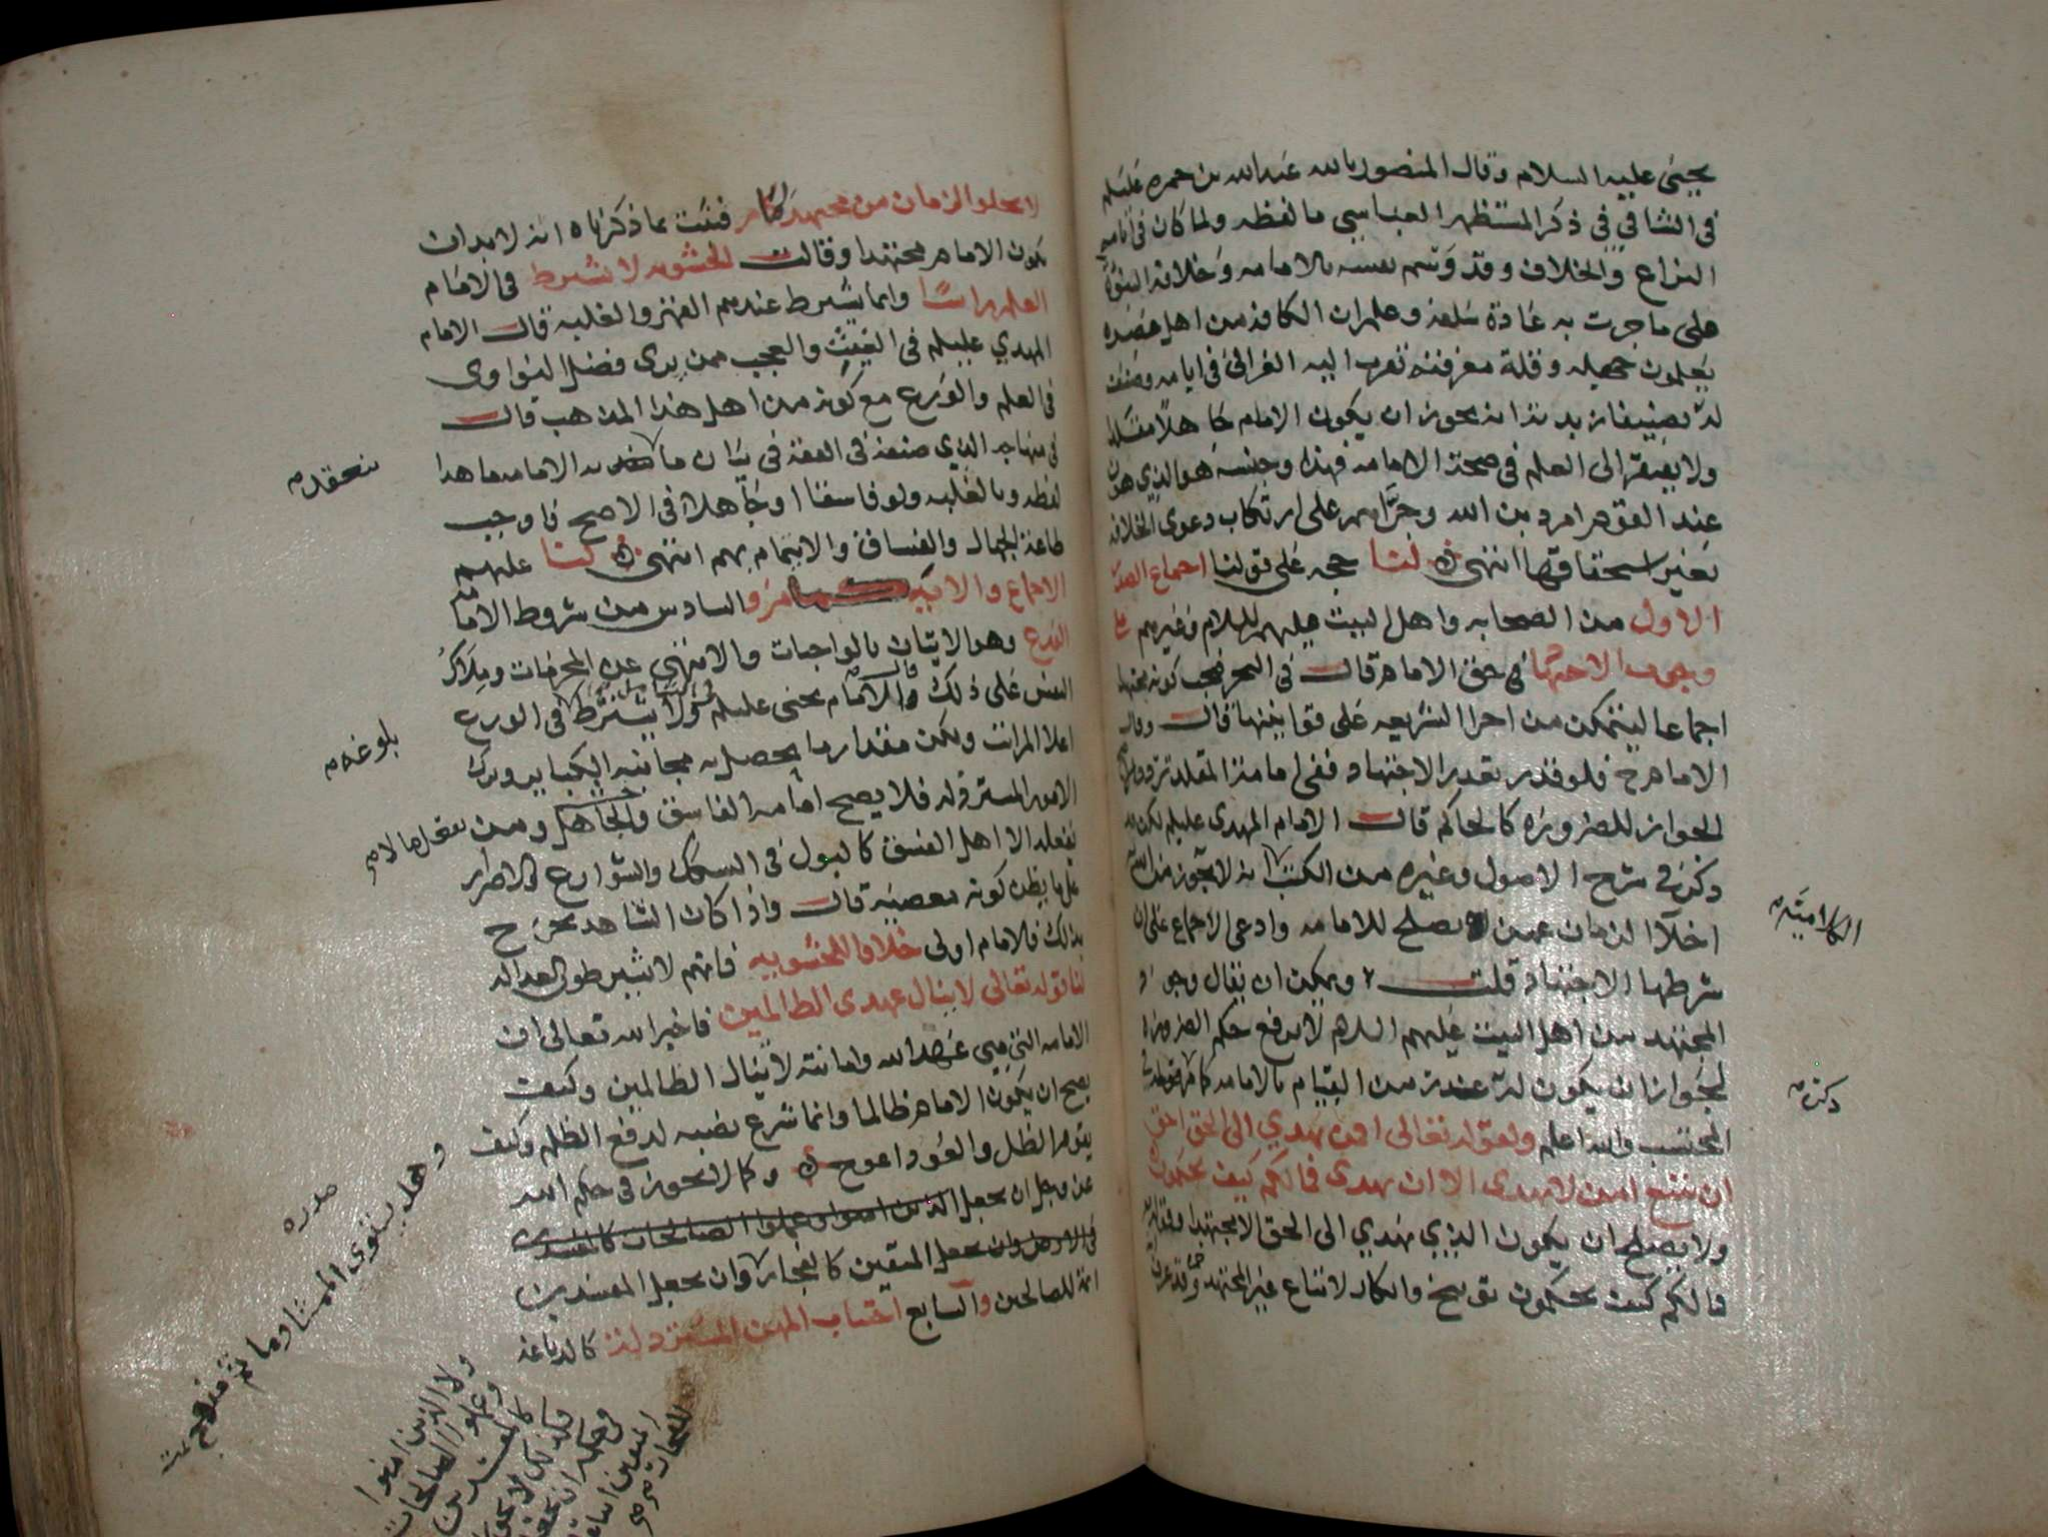 يحيى عليه السلام وقال المنصور بالله عبدالله بن حمزه عليلم
في الشافي في ذكر المستظهر العباسي ما لفظه ولما كان في ايامه
النزاع والخلاف وقد وسم نفسه بالامامه وخلافة النبوة
على ما جرت به عادة سلفه وعلم ان الكافه من اهل عصره
يعلمون جهله وقلة معرفته تقرب اليه الغزالي في ايامه وصنف
له تصنيفا انه يجوز ان يكون الامام جاهلا مقلدا
ولا يفتقر الى العلم في صحة الامامه فهذا وجنسه هو الذي هون
عند القوم امر دين الله وجرأهم على ارتكاب دعوى الخلافه
بغير استحقاقها انتهى لنا حجه على قولنا اجماع الصدر
الاول من الصحابه واهل البيت عليهم السلام وغيرهم على
وجوب الاجتهاد في حق الامام قال في البحر فيجب كونه مجتهدا
اجماعا ليتمكن من اجرا الشريعه على قوانينها قال وقال
الامام ح فلو قدر تعذر الاجتهاد ففي امامة المقلد تردد
الجواز للضروره كالحاكم قال الامام المهدي عليلم لكن قد
ذكر في شرح الاصول وغيره من الكتب انه لا يجوز من الله
اخلاا الزمان عمن يصلح للامامه وادعى الاجماع على ان
شرطها الاجتهاد قلت ويمكن ان يقال وجود
المجتهد من اهل البيت عليهم السلام لا يدفع حكم الضروره
لجواز ان يكون له عذر من القيام بالامامه كما
المحتسب والله اعلم ولقوله تعالى افمن يهدي الى الحق احق
ان يتبع امن لا يهدي الا ان يهدى فما لكم كيف تحكمون
ولا يصلح ان يكون الذي يهدي الى الحق الا مجتهدا وقوله
فما لكم كيف تحكمون توبيخ وانكار لاتباع غير المجتهد وقد عرفت
الكراميه
ذكره
لا يخلو الزمان من مجتهد فثبت بما ذكرناه انه لا بد ان
يكون الامام مجتهدا وقالت الحشويه لا يشترط في الامام
العلم راسا وانما يشترط عندهم القهر والغلبه قال الامام
المهدي عليلم في الغيث والعجب ممن يرى فضل النواوي
في العلم والورع مع كونه من اهل هذا المذهب قال
في منهاجه الذي صنفه في الفقه في بيان ما به الامامه ما هذا
لفظه وبالغلبه ولو فاسقا او جاهلا في الاصح فاوجب
طاعة الجهال والفساق والائتمام بهم انتهى لنا عليهم
الاجماع والايه والسادس من شروط الامامه
الورع وهو الاتيان بالواجبات والانتهى عن المحرمات وملاك
النفس على ذلك قال الامام يحيى عليلم ولا يشترط في الورع
اعلا المراتب ولكن مقدار ما يحصل به مجانبه الكبائر وترك
الامور المسترذله فلا يصح امامه الفاسق والجاهل ومن
يفعله الا اهل الفسق كالبول في السكك والشوارع والاصرار
على ما يظن كونه معصيه قال واذا كان الشاهد يجرح
بذلك فالامام اولى خلافا للحشويه فانهم لا يشترطون العداله
لنا قوله تعالى لا ينال عهدي الظالمين فاخبر الله تعالى ان
الامامه التي هي عهد الله وامانته لا ينال الظالمين وكيف
يصح ان يكون الامام ظالما وانما شرع نصبه لدفع الظلم وكيف
يقوم الظل والعود اعوج وكما لا يجوز في حكم الله
عز وجل ان يجعل الذين امنوا وعملوا الصالحات كالمفسدين
في الارض وان يجعل المتقين كالفجار وان يجعل المفسدين
ائمة للصالحين والسابع اجتناب المهن المسترذله كالدباغه
بلوغه
ولا الذين امنوا
وعملوا الصالحات
كالمفسدين